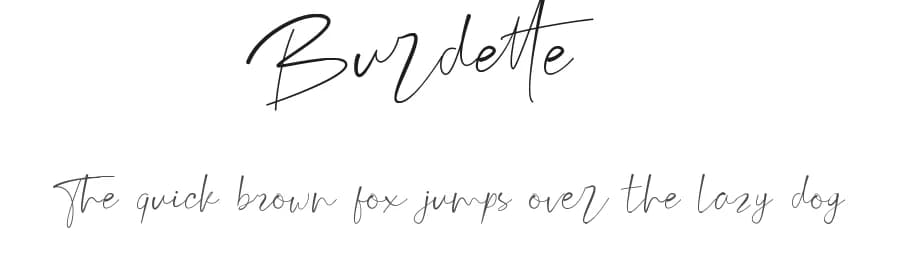 Burdette
The quick brown fox jumps over the lazy dog